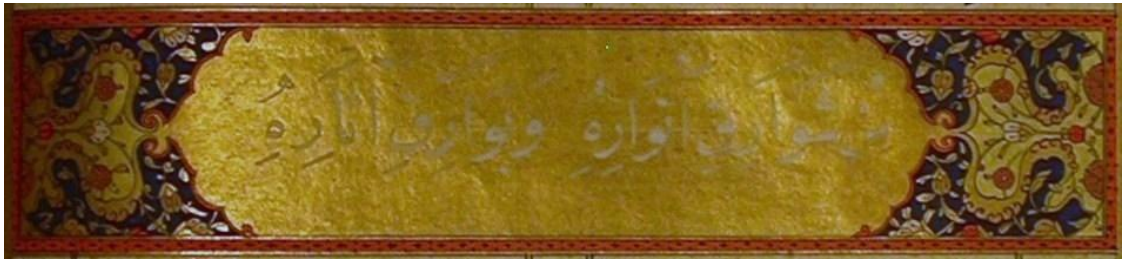 بشوارق انواره وبوارق اثاره